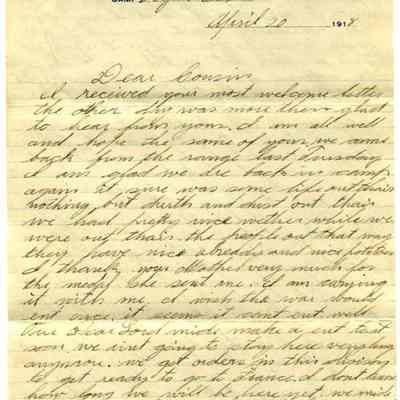 April 20 1918
Dear Cousin
I received your most welcome letter
the other day was more then glad
to hear from you. I am all well
and hope the same of you. we came
back from the range last Tuesday
I am glad we are back in camp
again it sure was some life out thair
nothing but durth and dust out thair
we had prety nice wether while we
were out thair. the people out that way
they have nice alreads and nice potatoes
I thank your Mother very much for
the medal she sent me. I am carying
it with me. I wish the war would
ent once. it seems it cant ent well
Our Dear Lord must make a ent to it
soon. we aint going to stay here very long
anymore. we got orders in this divission
to get ready to go to France. I dont know
how long we will be here yet. we